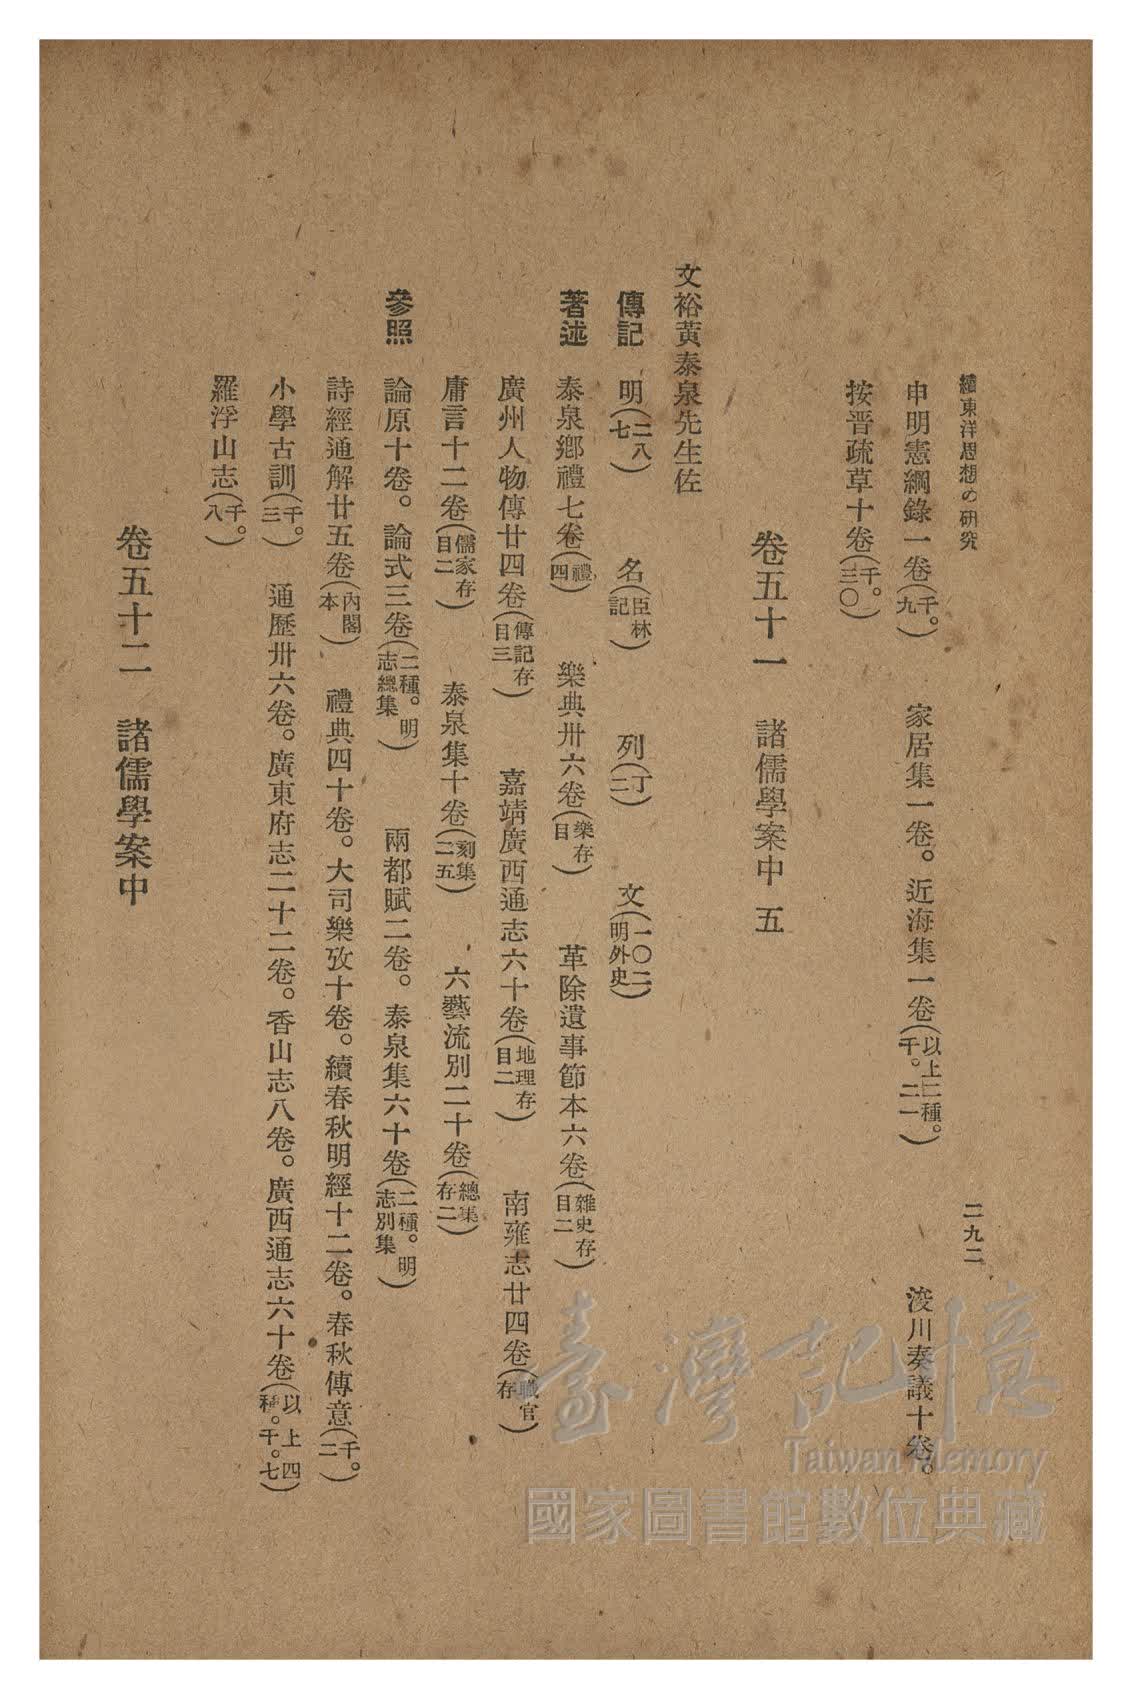 續東洋思想の研究
二九二
申明憲綱錄一卷(千。九) 家居集一卷。近海集一卷(以上二種。千。二一) 浚川奏議十卷。
按晋疏草十卷(千。三〇)
卷五十一 諸儒學案中 五
文裕黃泰泉先生佐
傳記 明(二八七) 名(臣林記) 列(丁二) 文(一〇二明外史)
著述 泰泉鄉禮七卷(禮四) 樂典卅六卷(樂存目) 革除遺事節本六卷(雜史存目二)
廣州人物傳廿四卷(傳記存目三) 嘉靖廣西通志六十卷(地理存目二) 南雍志廿四卷(職官存)
庸言十二卷(儒家存目二) 泰泉集十卷(別集二五) 六藝流別二十卷(總集存二)
參照 論原十卷。論式三卷(二種。明志總集) 兩都賦二卷。泰泉集六十卷(二種。明志別集)
詩經通解廿五卷(內閣本) 禮典四十卷。大司樂攷十卷。續春秋明經十二卷。春秋傳意(千。二)
小學古訓(千。三) 通歷卅六卷。廣東府志二十二卷。香山志八卷。廣西通志六十卷(以上四種。千。七)
羅浮山志(千。八)
卷五十二 諸儒學案中
臺灣記憶
Taiwan Memory
國家圖書館數位典藏